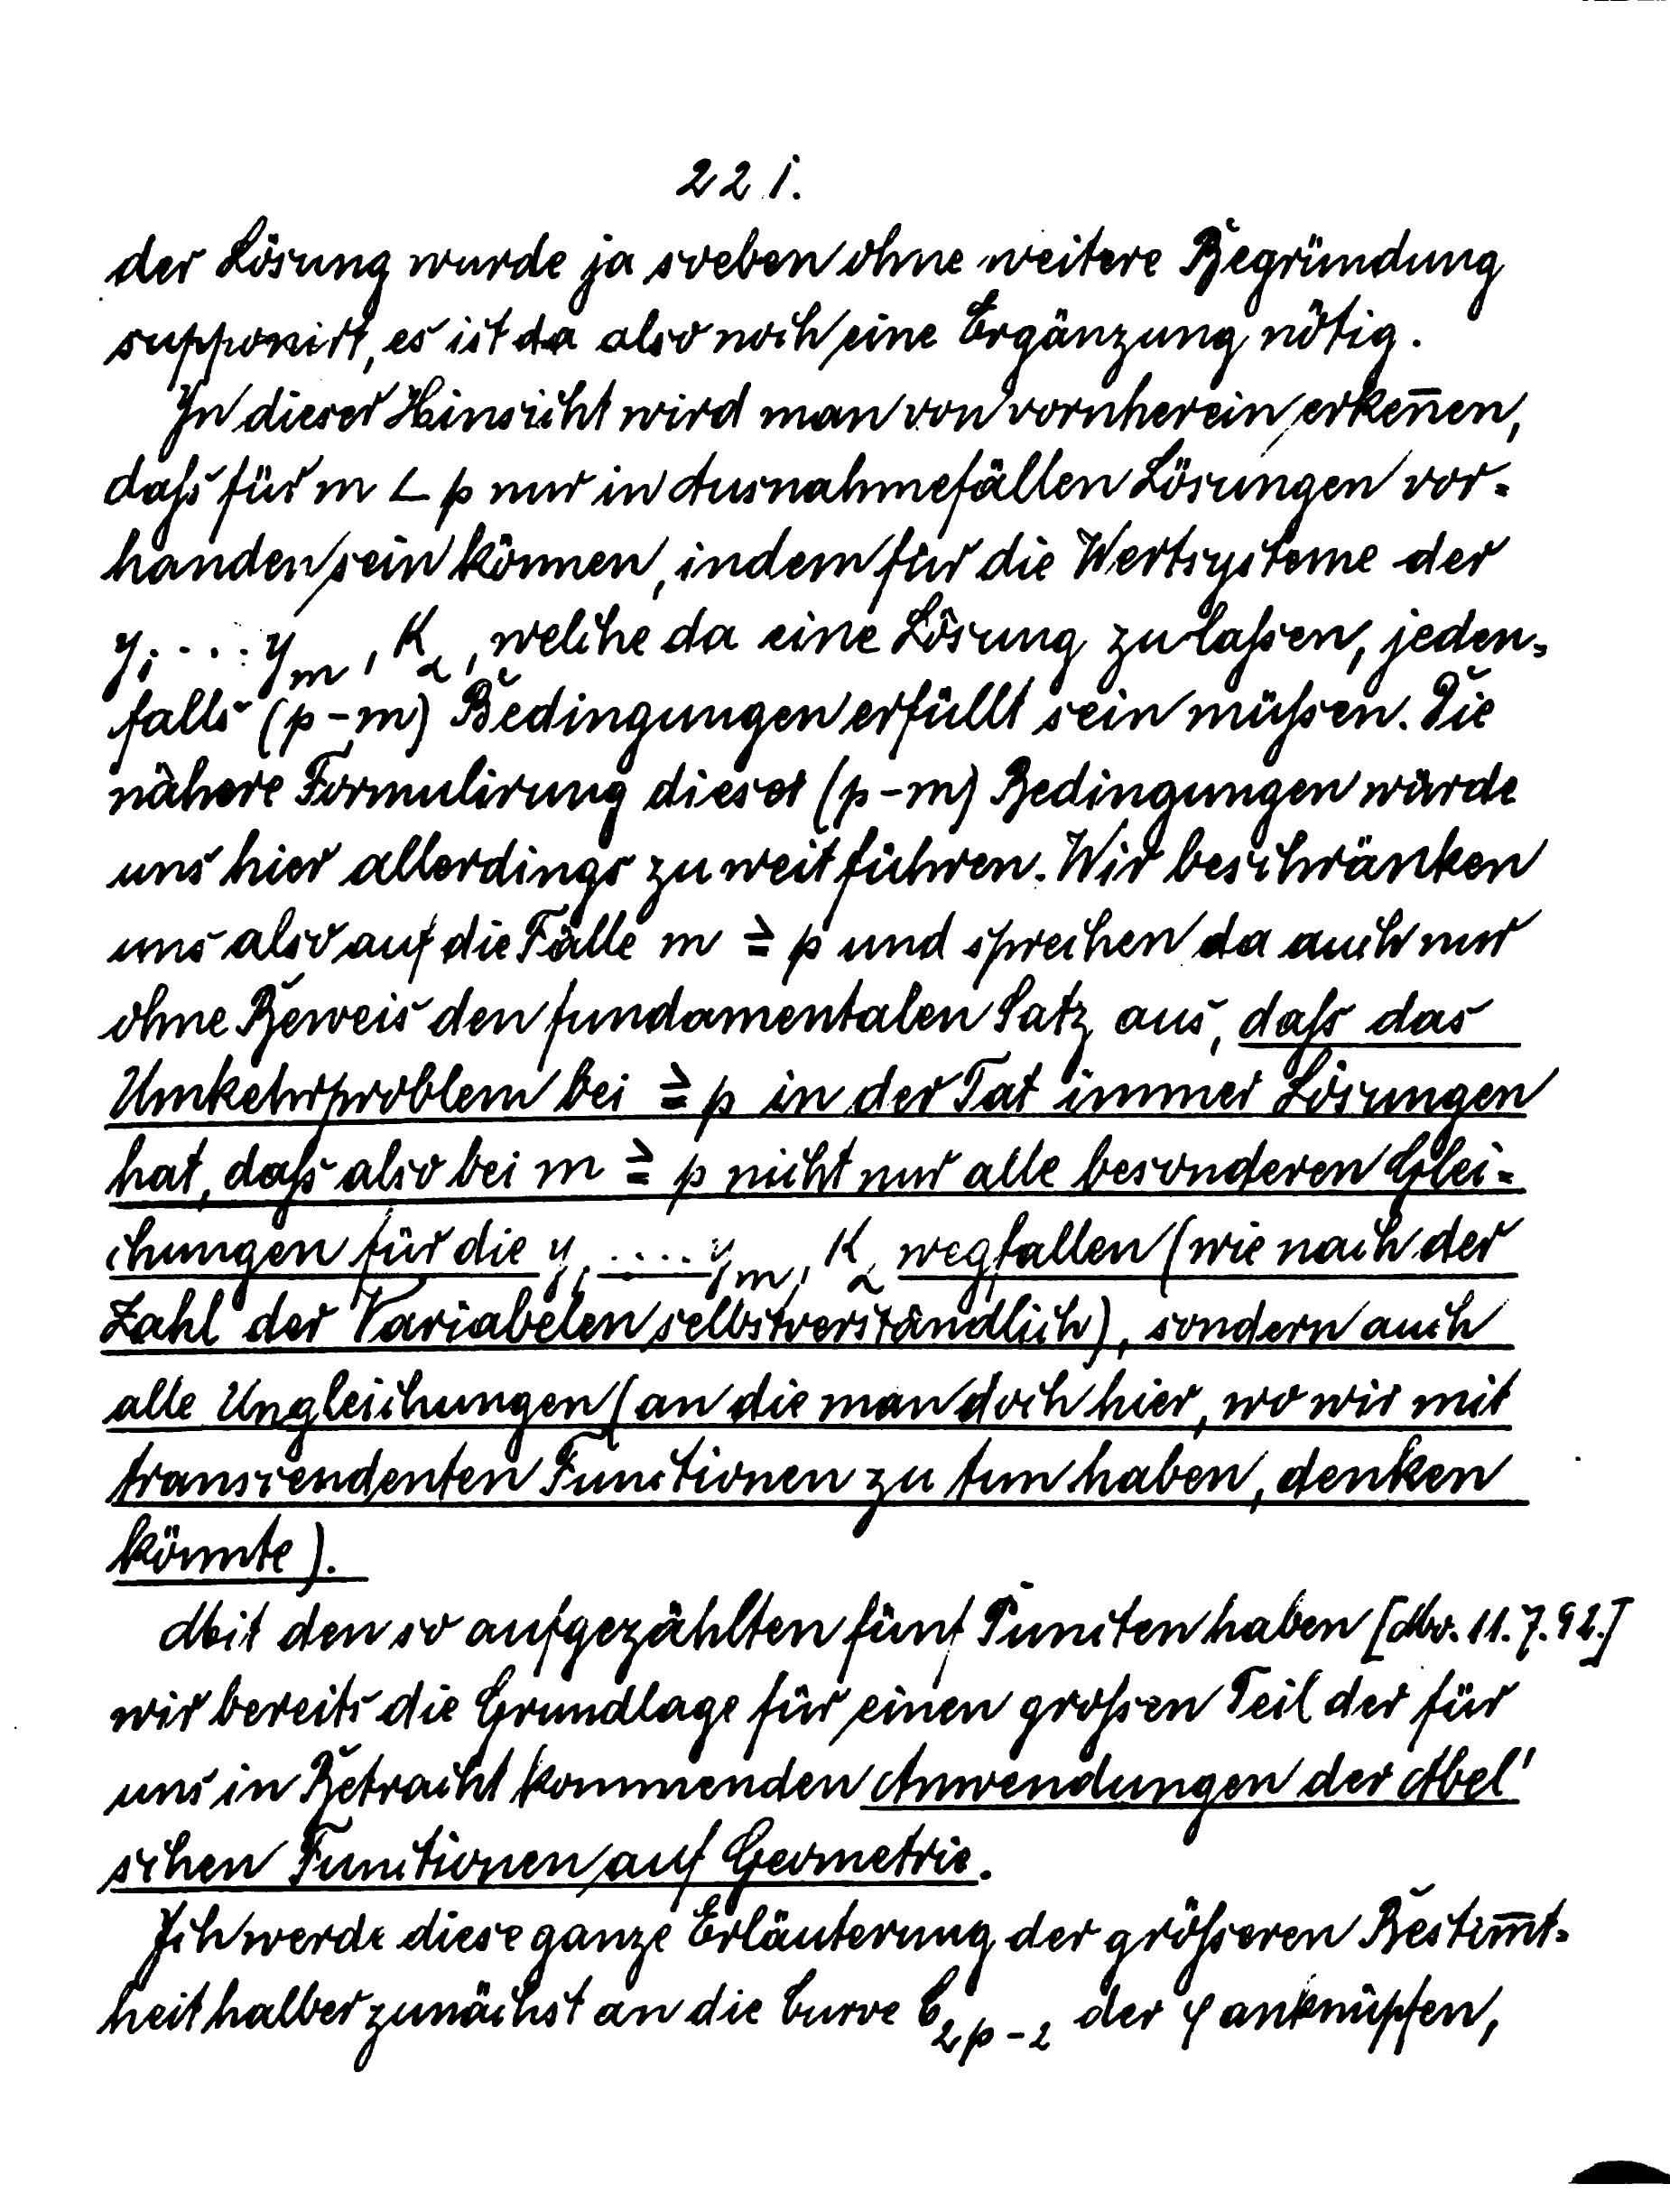 221.
der Lösung wurde ja soeben ohne weitere Begründung
supponirt, es ist da also noch eine Ergänzung nötig.
In dieser Hinsicht wird man von vornherein erkeñen,
daſs für m < p nur in Ausnahmefällen Lösungen vor-
handen sein können, indem für die Wertsysteme der
y₁....yₘ, K_α, welche da eine Lösung zulaſsen, jeden-
falls (p-m) Bedingungen erfüllt sein müſsen. Die
nähere Formulirung dieser (p-m) Bedingungen würde
uns hier allerdings zu weit führen. Wir beschränken
uns also auf die Fälle m ≧ p und sprechen da auch nur
ohne Beweis den fundamentalen Satz aus, daſs das
Umkehrproblem bei ≧ p in der Tat immer Lösungen
hat, daſs also bei m ≧ p nicht nur alle besonderen Glei-
chungen für die y₁.....yₘ, K_α wegfallen (wie nach der
Zahl der Variabelen selbstverständlich), sondern auch
alle Ungleichungen (an die man doch hier, wo wir mit
transcendenten Functionen zu tun haben, denken
könnte).
Mit den so aufgezählten fünf Puncten haben [Mo. 11.7.92.]
wir bereits die Grundlage für einen groſsen Teil der für
uns in Betracht kommenden Anwendungen der Abel'
schen Functionen auf Geometrie.
Ich werde diese ganze Erläuterung der gröſseren Bestim̄t-
heit halber zunächst an die Curve C₂ₚ₋₂ der φ anknüpfen,